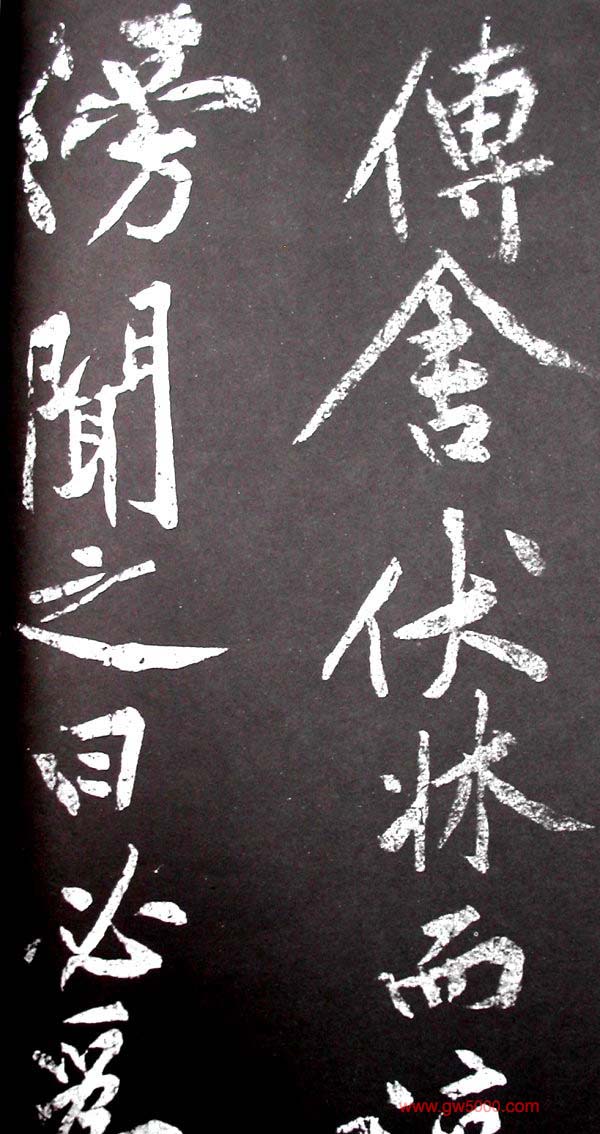 傳舍伏牀而
傍聞之曰必
www.gw5000.com